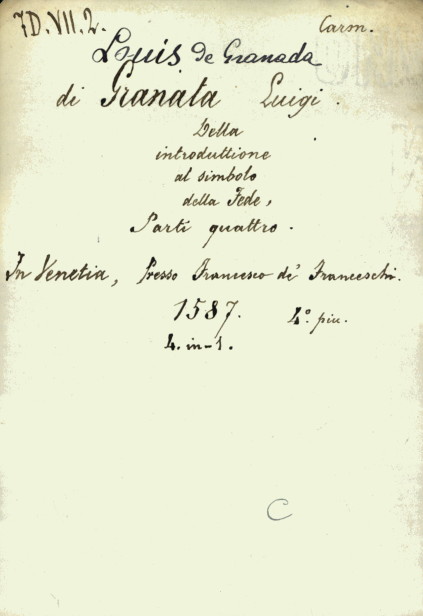 7D.VII.2.
Carm.
Louis de Granada
di Granata Luigi.
Della
introduttione
al simbolo
della Fede,
Parti quattro.
In Venetia, Presso Francesco de' Franceschi.
1587. 4.° piu.
4. in-1.
C